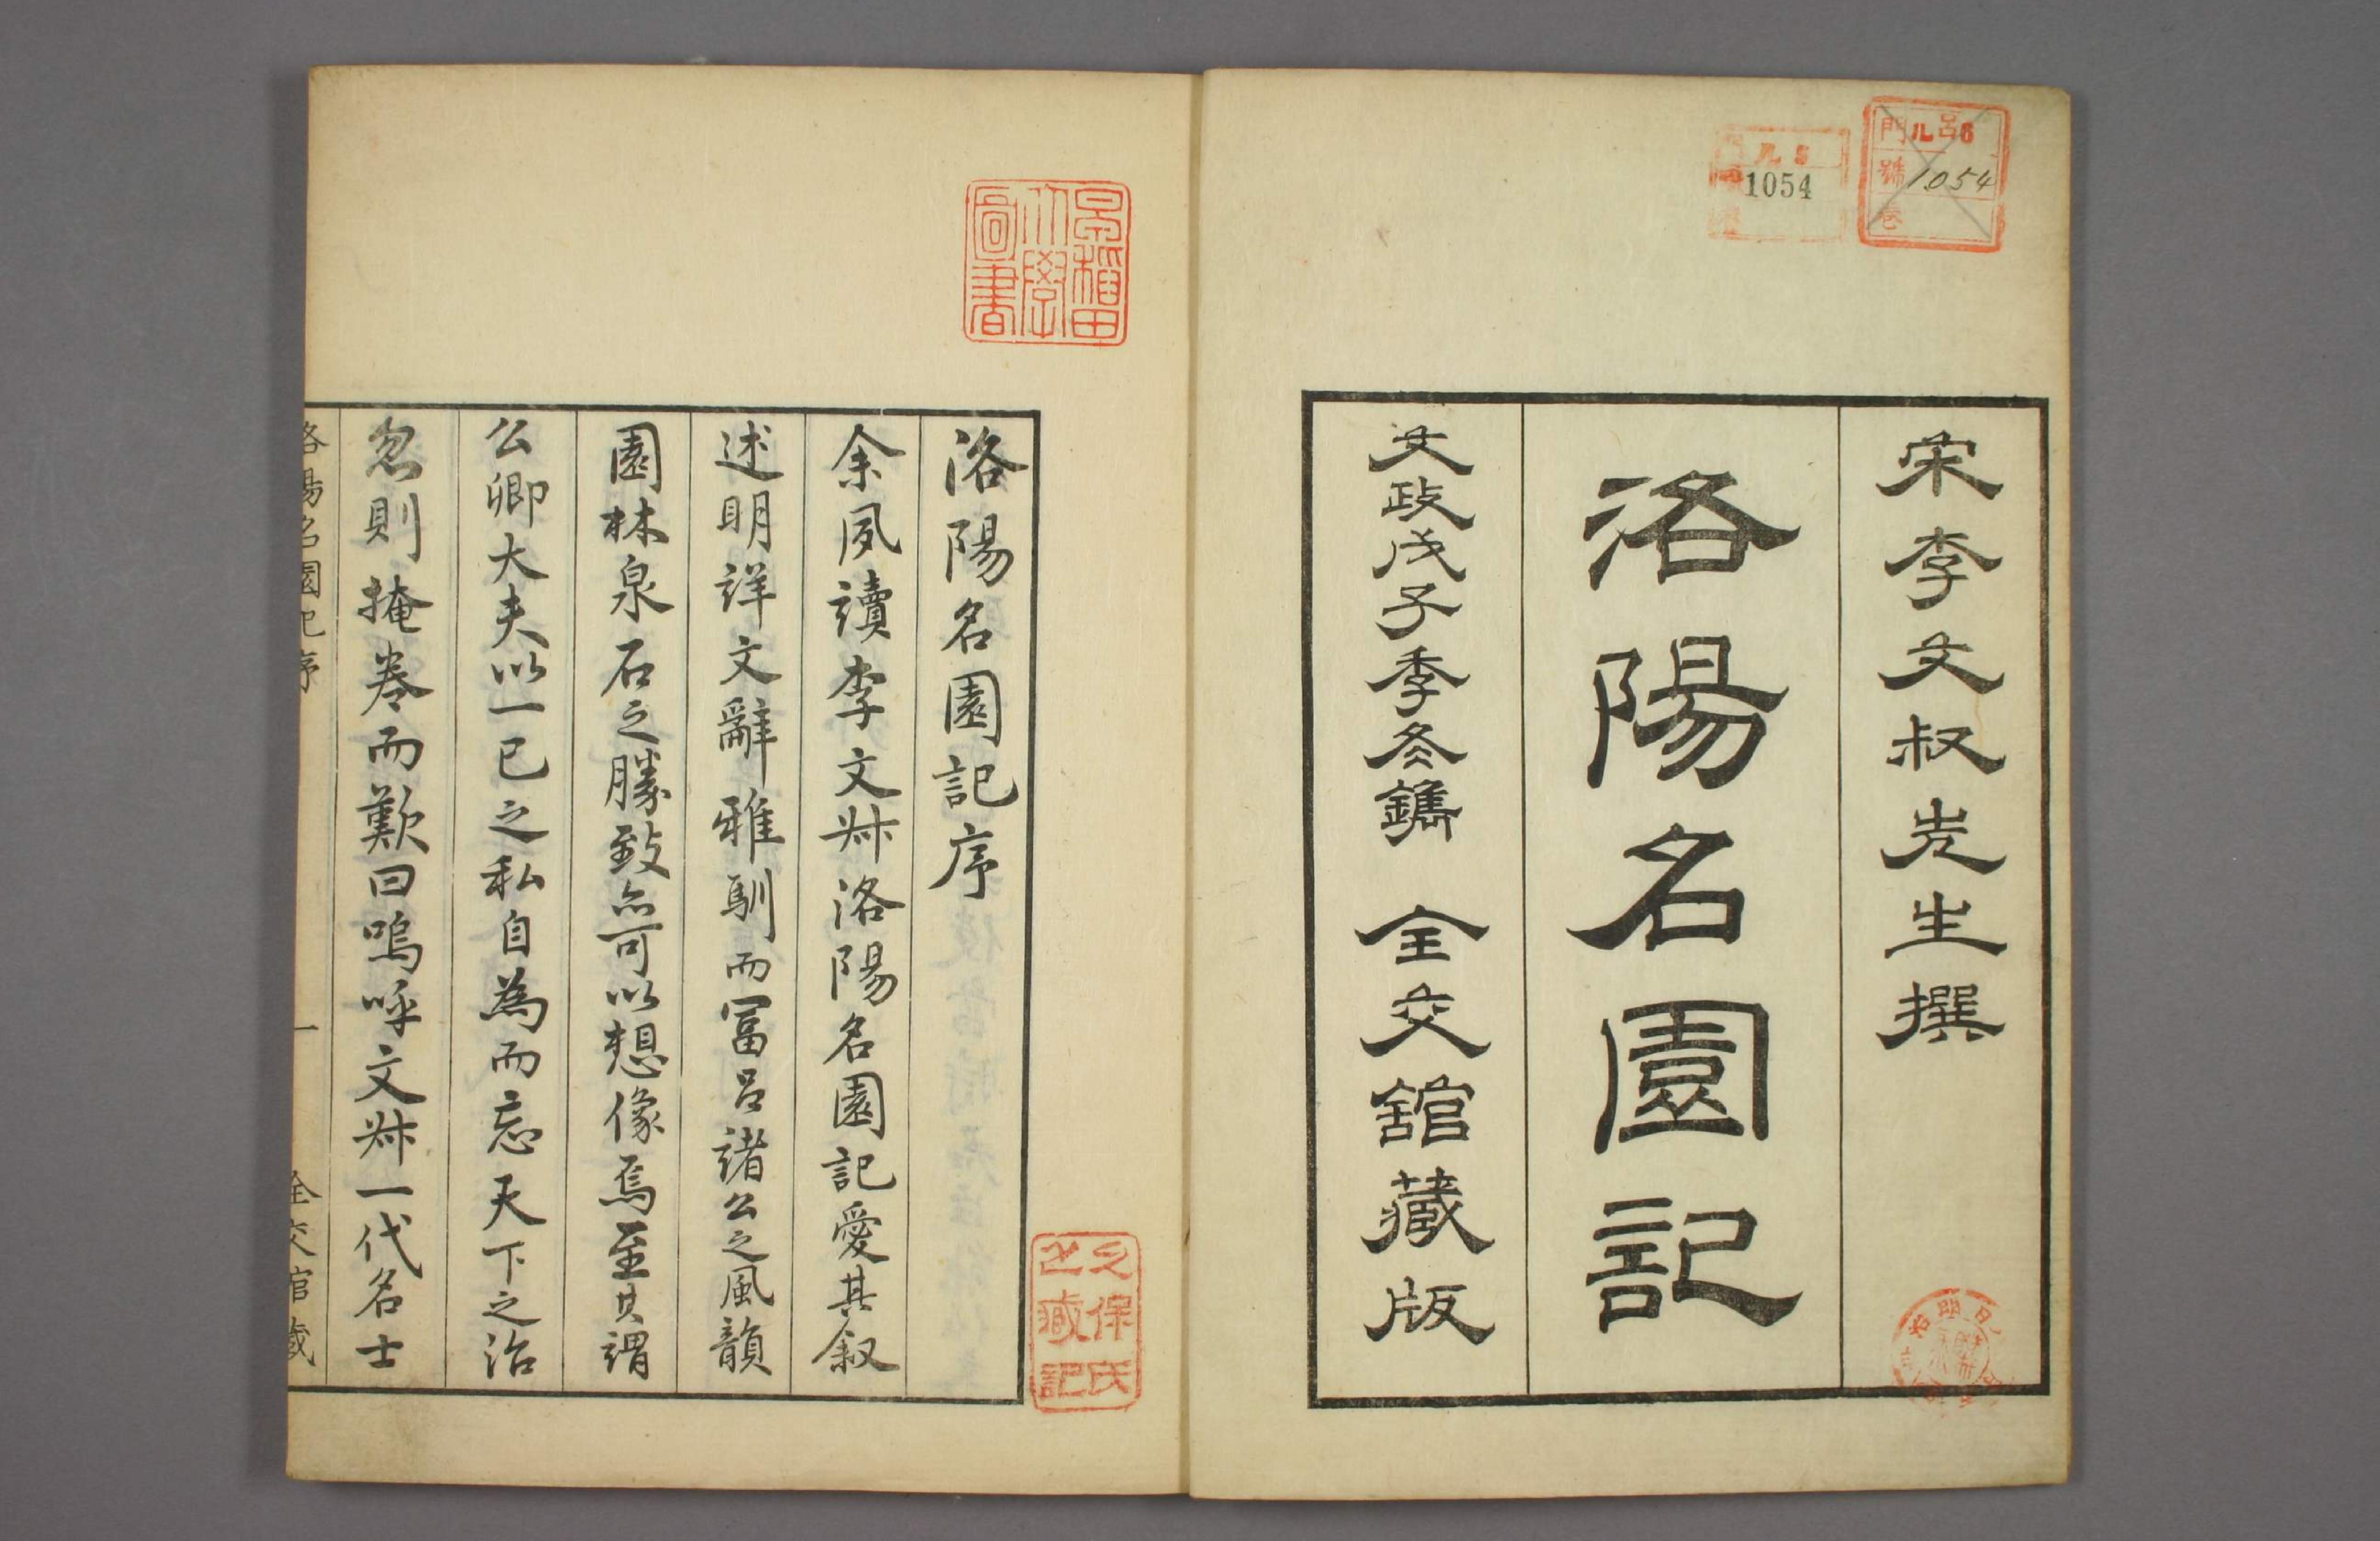 宋李文叔先生撰
洛陽名園記
文政戊子季冬鐫　全交館藏版
門ル 6
號 1054
卷
ル 5
1054
早稲田大學圖書
久保氏之藏記
洛陽名園記序
余夙讀李文叔洛陽名園記愛其叙
述明詳文辭雅馴而冨呂諸公之風韻
園林泉石之勝致亦可以想像焉至其謂
公卿大夫以一己之私自為而忘天下之治
忽則掩卷而歎曰嗚呼文叔一代名士
洛陽名園記序　一　全交館藏